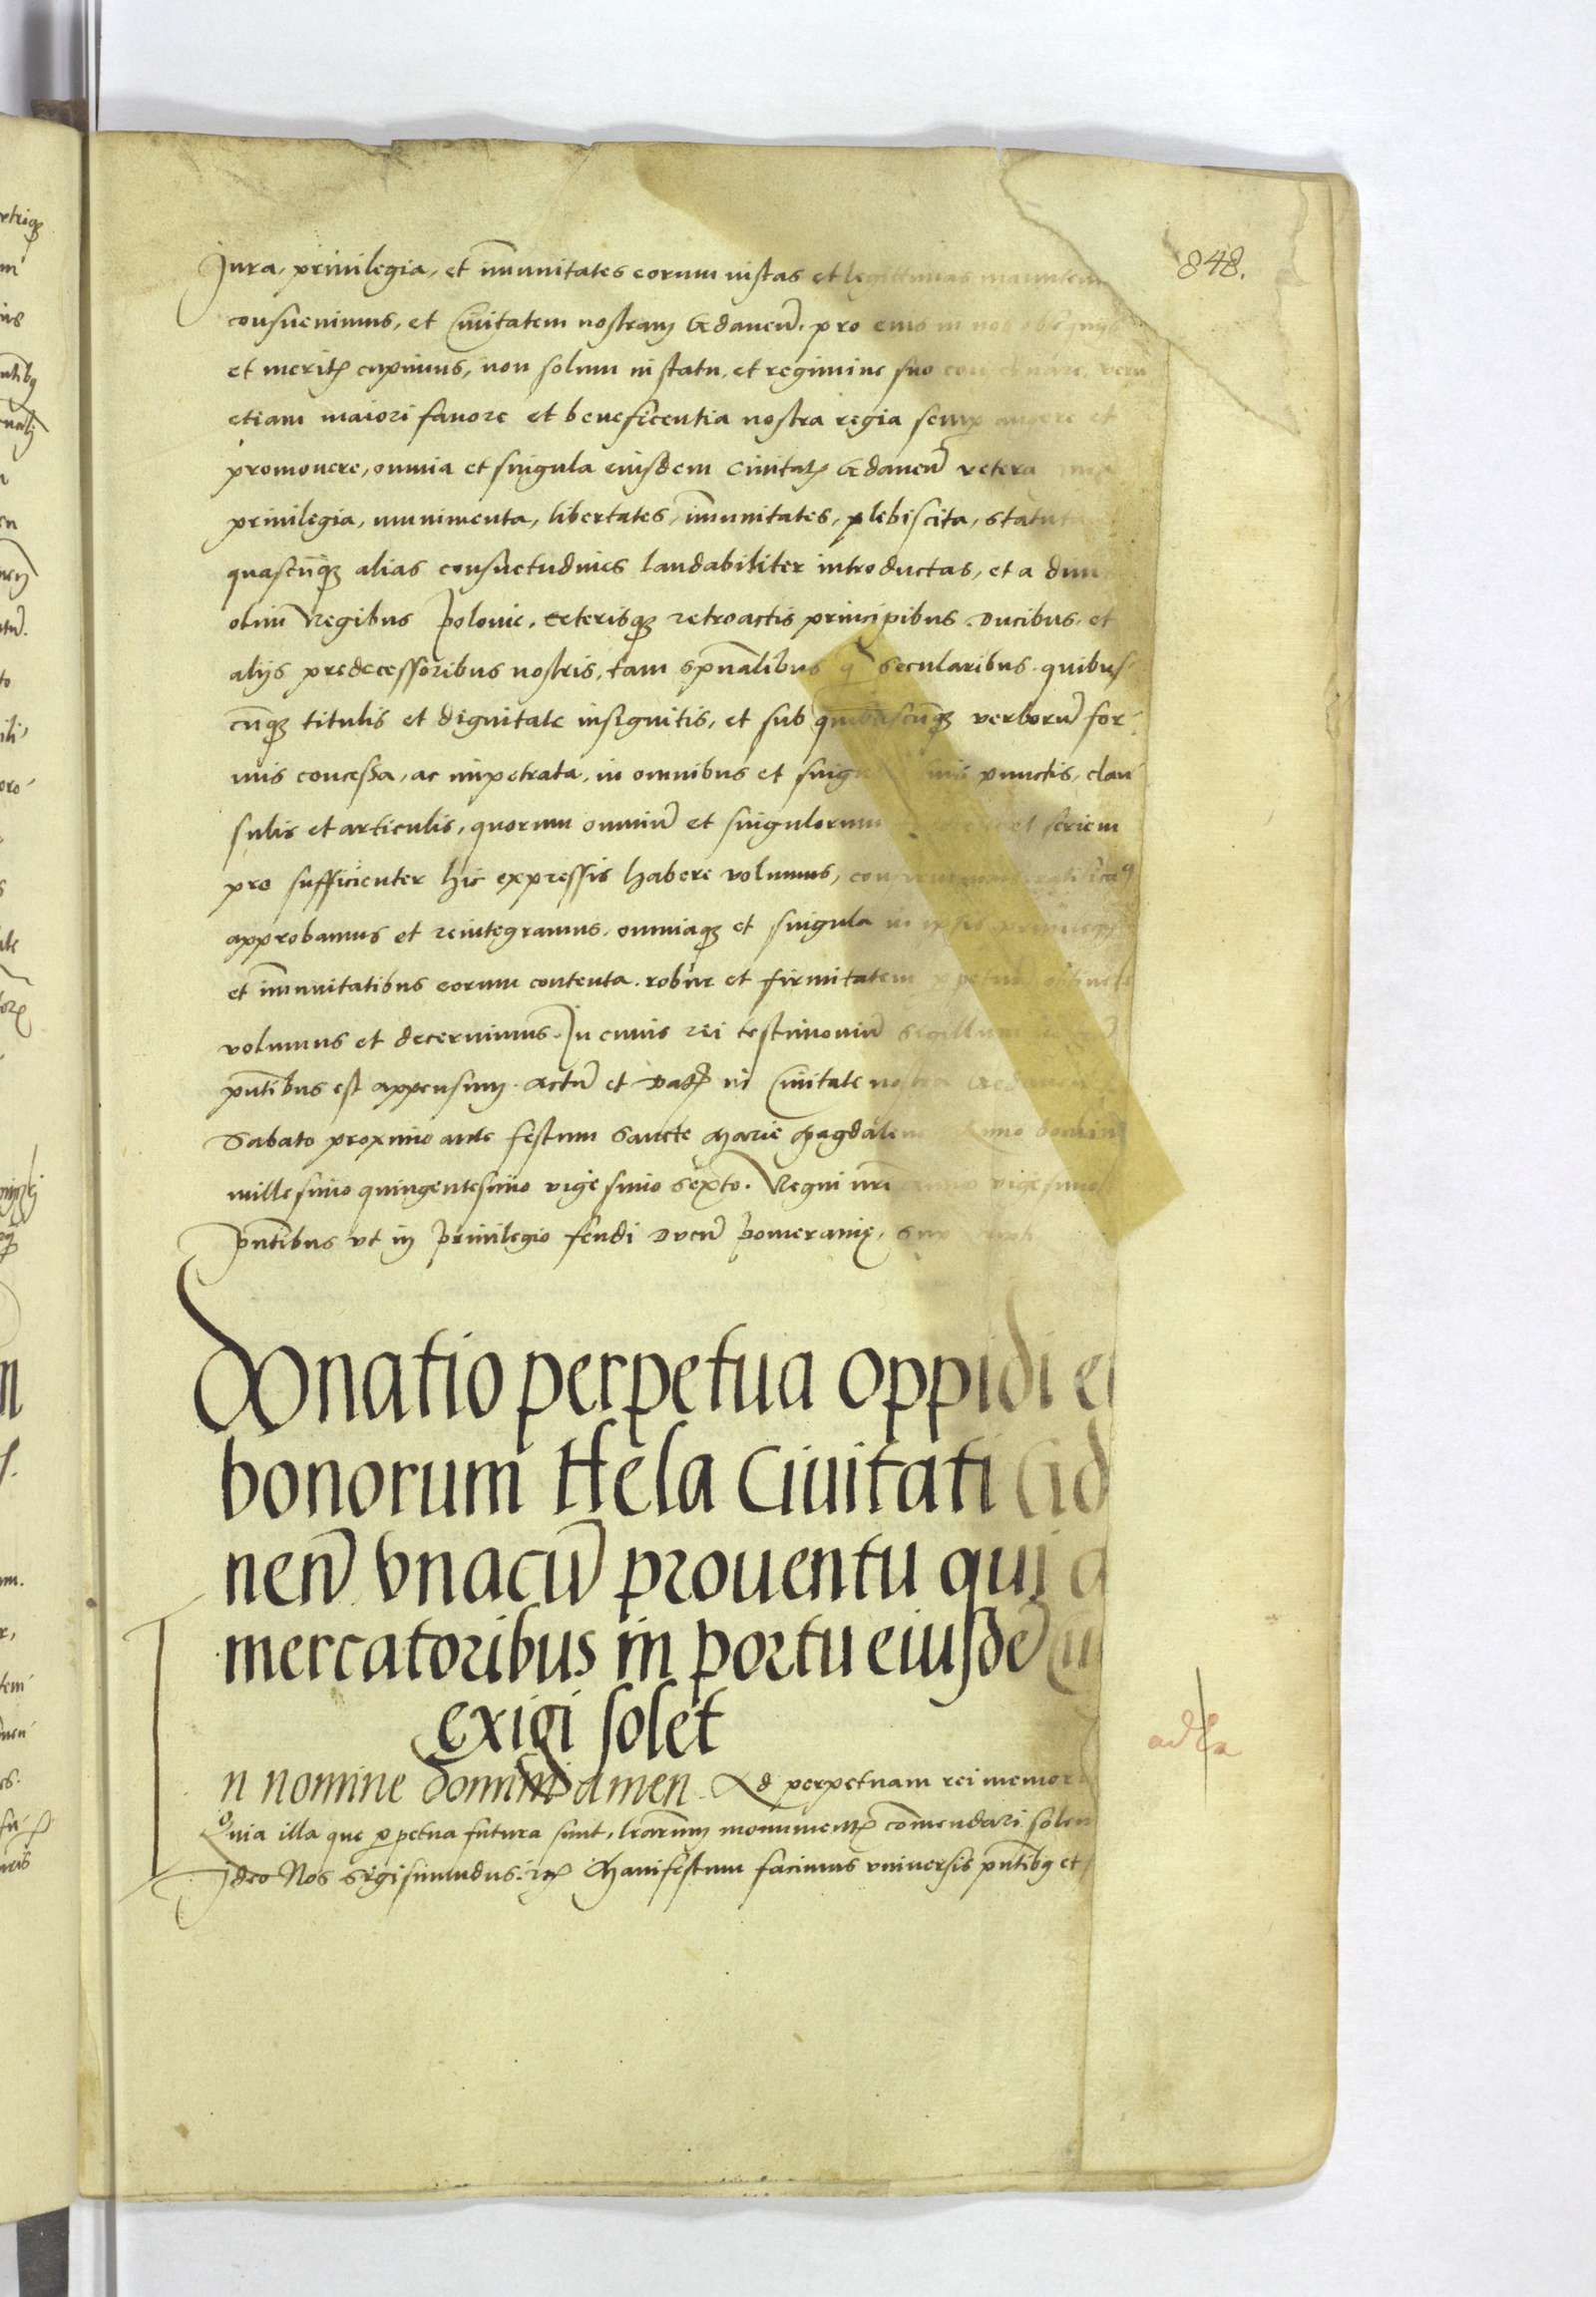 848.
Jura, priuilegia, et im̄unitates eorum iustas et legittimas manutenere
consueuimus, et Ciuitatem nostram Gedaneñ. pro eius in nos obsequijs
et meritꝭ cupimus, non solum in statu, et regimine suo veru
etiam maiori fauore et beneficentia nostra regia semꝑ augere et
promouere, omnia et singula eiusdem Ciuitatꝭ Gedaneñ vetera
priuilegia, munimenta, libertates, im̄unitates, plebiscita, statuta
quascūqꝫ alias consuetudines laudabiliter introductas, et a diui
olim Regibus Polonie, ceterisqꝫ retroactis principibus. Ducibus. et
alijs predecessoribus nostris, tam sp̄ualibus qͣ secularibus. quibus
cūqꝫ titulis et dignitate insignitis, et sub quibuscūqꝫ verborū for
mis concessa, ac impetrata, in omnibus et singu suis punctis, clau
sulis et articulis, quorum omniū et singulorum et seriem
pro sufficienter hic expressis habere volumus,
approbamus et reintegramus. omniaqꝫ et singula in ipsis priuilegijs
et im̄unitatibus eorum contenta. robur et firmitatem ꝑpetuā obtinere
volumus et decernimus. In cuius rei testimoniū Sigillum
pn̄tibus est appensum. Actū et Datꝭ in Ciuitate nostra Gedaneñ
Sabato proximo ante festum Sancte Marie Magdalene Anno domini
millesimo quingentesimo vigesimo sexto. Regni nr̄i anno vigesimo
Pn̄tibus vt in Priuilegio feudi Ducū Pomeranię,
Donatio perpetua oppidi et
bonorum Hela Ciuitati Gd
neñ vnacū prouentu qui a
mercatoribus in portu eiusdē Ciu
exigi solet
In nomine domini amen. Ad perpetuam rei memori
Quia illa que ꝑpetua futura sunt, lr̄arum monumentꝭ com̄endari solen
Ideo Nos Sigismundus. ꝛcꝭ Manifestum facimus vniuersis pn̄tibꝫ et